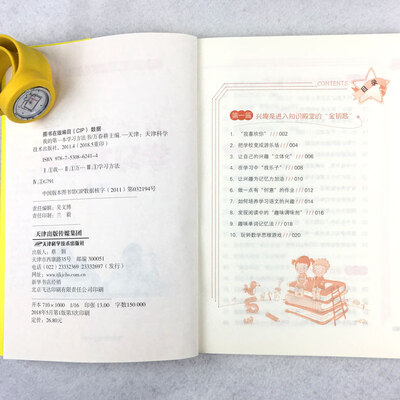 图书在版编目(CIP)数据
我的第一本学习方法书/万春耕主编.—天津:天津科学
技术出版社,2011.4(2018.5重印)
ISBN 978-7-5308-6241-4
Ⅰ.①我… Ⅱ.①万… Ⅲ.①学习方法
Ⅳ.①G791
中国版本图书馆CIP数据核字(2011)第032194号
责任编辑:吴文博
责任印制:兰毅
天津出版传媒集团
天津科学技术出版社出版
出版人:蔡颢
天津市西康路35号 邮编 300051
电话(022)23332369 23332697(发行)
网址:www.tjkjcbs.com.cn
新华书店经销
北京飞达印刷有限责任公司印刷
开本 710×1000 1/16 印张 13.00 字数 150 000
2018年5月第1版第3次印刷
定价:26.80元
CONTENTS
目录
第一篇 兴趣是进入知识殿堂的“金钥匙”
1. “我喜欢你”///002
2. 把学校变成游乐场///004
3. 让自己的兴趣“立体化”///006
4. 在学习中“找乐子”///008
5. 让兴趣为记忆力加油///010
6. 做一点有“创意”的作业///012
7. 如何培养学习语文的兴趣///014
8. 发现阅读中的“趣味调味剂”///016
9. 趣味单词记忆法///018
10. 玩转数学思维游戏///020